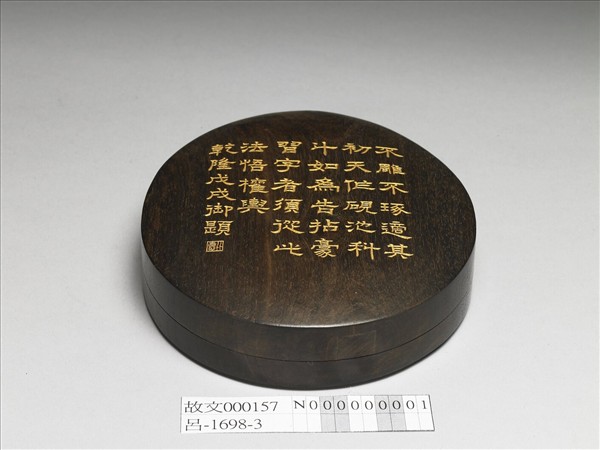 不雕不琢適其
初天作硯池科
斗如為告拈豪
習字者須從此
法悟權輿
乾隆戊戌御題
故文000157 N000000001
呂-1698-3